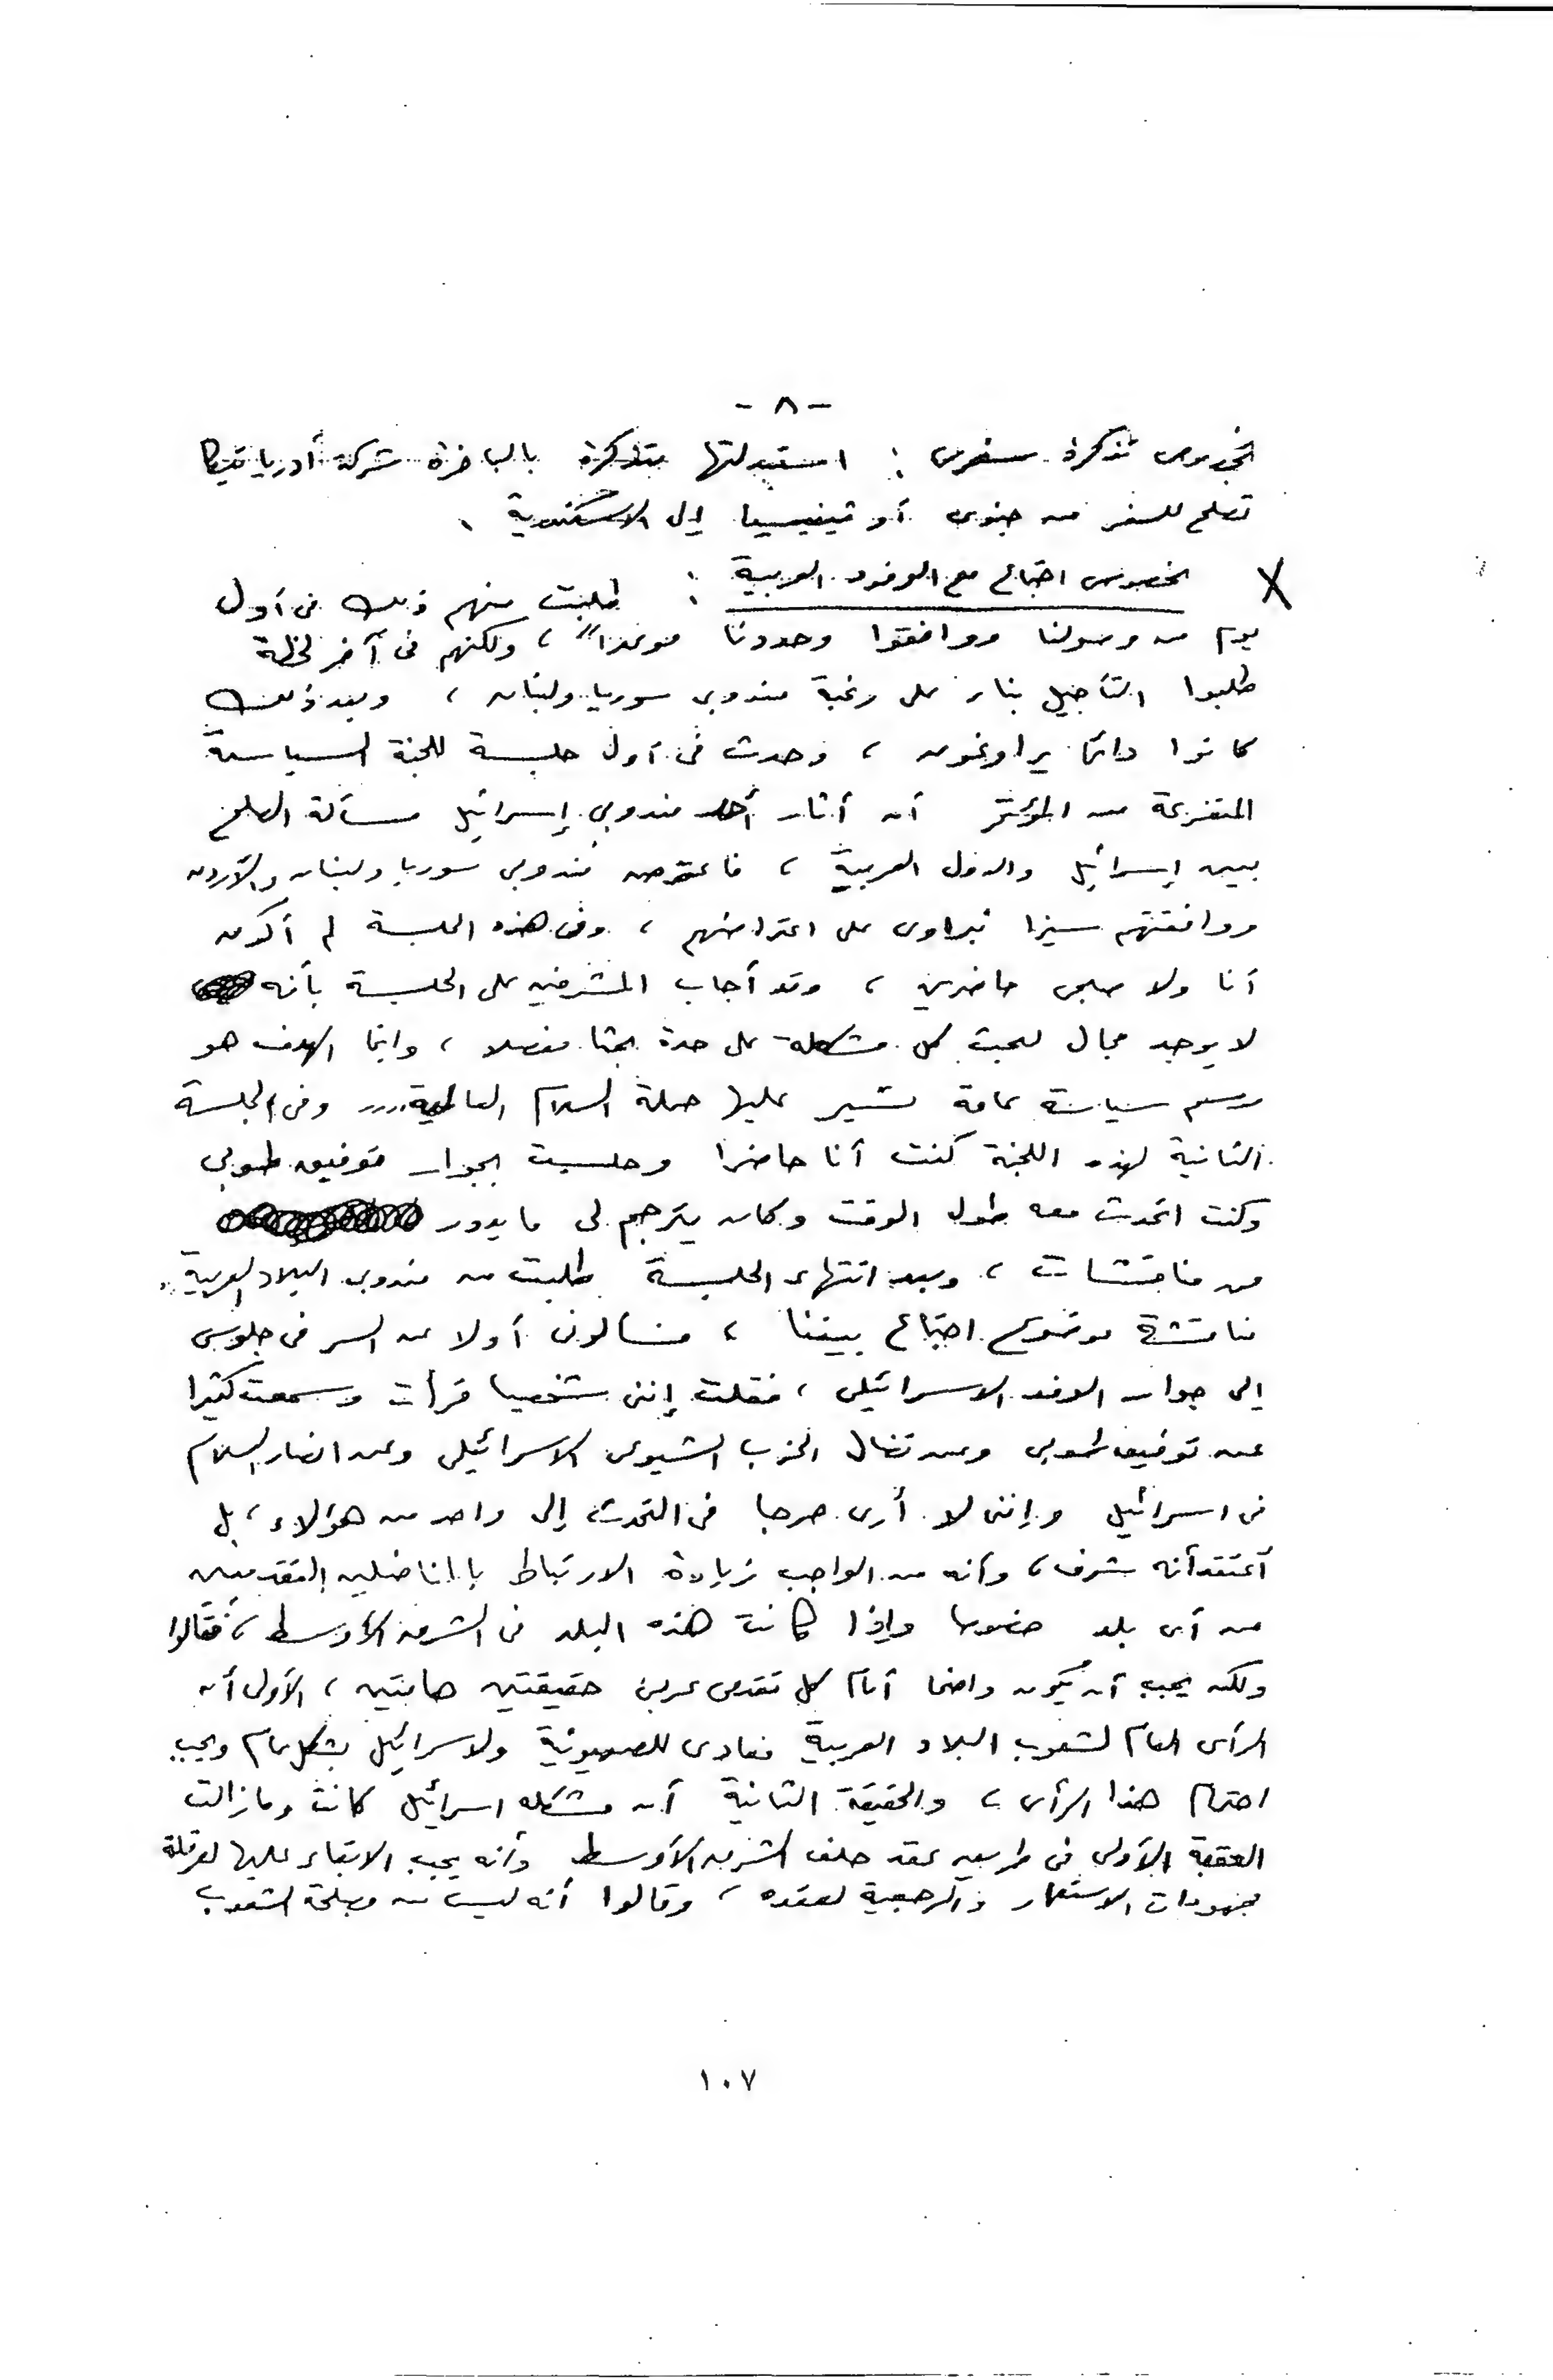 - ٨ -
بخصوص تذكرة سفرى : استبدلتها بتذكرة بالباخرة شركة أدرياتيكا
تصلح للسفر من جنوى أو فينيسيا إلى الاسكندرية .
X بخصوص اجتماع مع الوفود العربية : طلبت منهم ذلك فى أول
يوم من وصولنا ووافقوا وحددنا موعداً ، ولكنهم فى آخر لحظة
طلبوا التأجيل بناء على رغبة مندوبى سوريا ولبنان ، وبعد ذلك
كانوا دائما يراوغون ، وحدث فى أول جلسة للجنة السياسية
المتفرعة من المؤتمر أن أثار أحد مندوبى إسرائيل مسألة الصلح
بين إسرائيل والدول العربية ، فاعترض مندوبى سوريا ولبنان والأردن
ووافقتهم سيزا نبراوى على اعتراضهم ، وفى هذه الجلسة لم أكون
أنا ولا حاضرين ، وقد أجاب المشرفين على الجلسة بأنه
لا يوجد مجال لبحث كل مشكلة على حدة بحثا مفصلا ، وانما الهدف هو
رسم سياسة عامة تسير عليها حملة السلام العالمية .... وفى الجلسة
الثانية لهذه اللجنة كنت أنا حاضرا وجلست بجوار توفيق طوبى
وكنت اتحدث معه طول الوقت وكان يترجم لى ما يدور
من مناقشات ، وبعد انتهاء الجلسة طلبت من مندوبى البلاد العربية
مناقشة موضوع اجتماع بيننا ، فسألونى أولا عن السر فى جلوسى
إلى جوار الوفد الاسرائيلى ، فقلت إننى شخصيا قرأت وسمعت كثيرا
عن توفيق طوبى وعن نضال الحزب الشيوعى الاسرائيلى وعن انصار السلام
فى اسرائيل وإننى لا أرى حرجا فى التحدث إلى واحد من هؤلاء ، بل
أعتقد أنه شرف ، وأنه من الواجب زيادة الارتباط بالمناضلين التقدميين
من أى بلد خصوصا وإذا كانت هذه البلد فى الشرق الأوسط ، فقالوا
ولكن يجب أن يكون واضحا أمام كل تقدمى عربى حقيقتين هامتين ، الأولى أن
الرأى العام لشعوب البلاد العربية معادى للصهيونية ولاسرائيل بشكل عام ويجب
احترام هذا الرأى ، والحقيقة الثانية أن مشكلة اسرائيل كانت ومازالت
العقبة الأولى فى طريق عقد حلف الشرق الأوسط وأنه يجب الابقاء عليها لعرقلة
مجهودات الاستعمار والرجعية لعقده ، وقالوا أنه ليس من مصلحة الشعوب
١٠٧